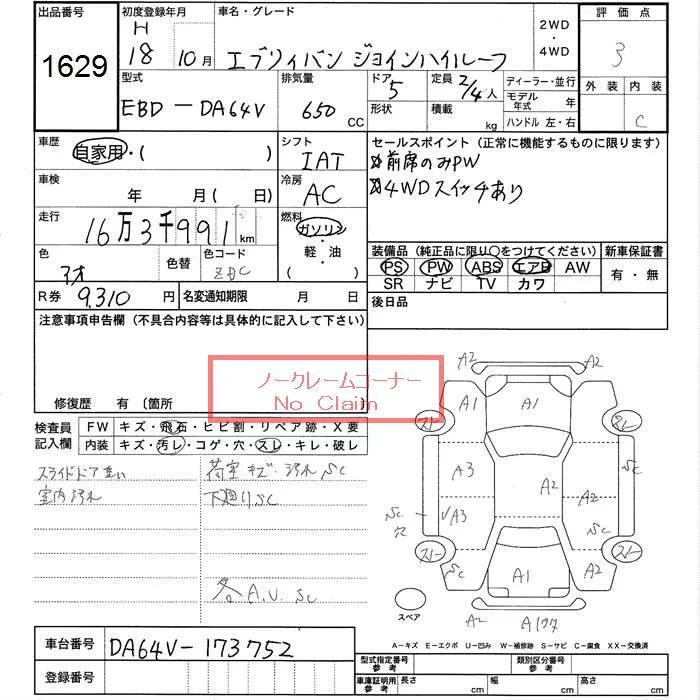 出品番号
1629
初度登録年月
H
18 10月
車名・グレード
エブリィバン ジョインハイルーフ
2WD
・
4WD
評価点
3
外装 内装
C
型式
EBD-DA64V
排気量
650
CC
ドア
5
形状
定員
2/4人
積載
kg
ディーラー・並行
モデル年式 年
ハンドル 左・右
車歴
自家用・( )
シフト
IAT
車検
年 月(日)
冷房
AC
走行
16万3千991km
燃料
ガソリン
・
軽・油
( )
色
アオ
色替
色コード
ZBC
R券 9,310円
名変通知期限 月 日
セールスポイント(正常に機能するものに限ります)
前席のみPW
4WDスイッチあり
装備品(純正品に限り○をつけてください)
PS PW ABS エアB AW
SR ナビ TV カワ
新車保証書
有・無
後日品
注意事項申告欄(不具合内容等は具体的に記入して下さい)
修復歴 有(箇所
ノークレームコーナー
No Claim
検査員
記入欄
FW キズ・飛石・ヒビ割・リペア跡・X要
内装 キズ・汚レ・コゲ・穴・スレ・キレ・破レ
スライドドア重い
室内汚れ
荷室キズ・汚れ Sc
下廻りSC
各A.U.Sc
A2 A2
A1 A1
スレー
A3 A2 A2 Sc
Sc
穴
√A3 Sc
スレー スレー
Sc A1 A2
A2
スペア
A-キズ E-エクボ U-凹み W-補修跡 S-サビ C-腐食 XX-交換済
車台番号 DA64V-173752
登録番号
型式指定番号
参考
類別区分番号
参考
車庫証明用
参考
長さ cm 幅 cm 高さ cm